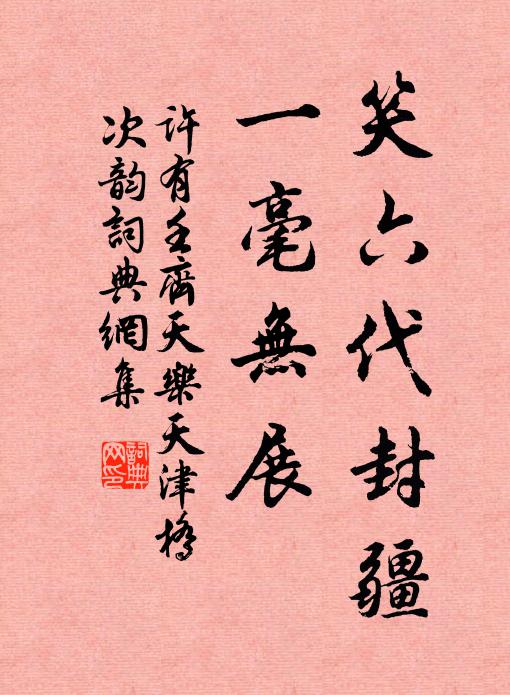 笑六代封疆
一毫無展
许有壬齊天樂天津橋
次韵詞典網集
詞典網印